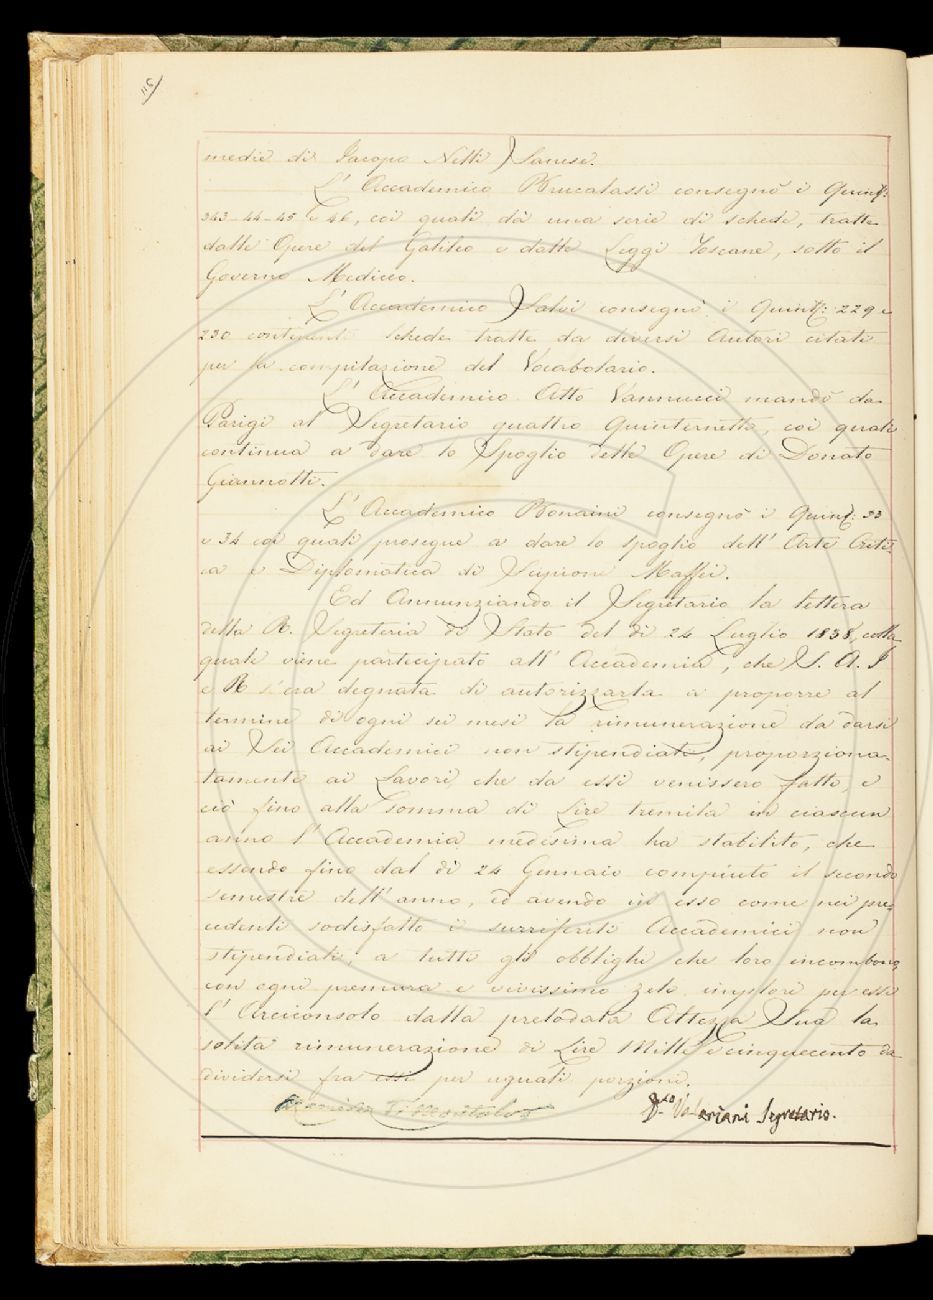 116
medie di Jacopo Nelli Sanese.
L' Accademico Brucalassi consegnò i Quint:
343-44-45 e 46, coi quali dà una serie di schede, tratte
dalle Opere del Galileo e dalle Leggi Toscane, sotto il
Governo Mediceo.
L' Accademico Salvi consegnò i Quint: 229 e
230 contenenti schede tratte da diversi Autori citati
per la compilazione del Vocabolario.
L' Accademico Atto Vannucci mandò da
Parigi al Segretario quattro Quinternetti, coi quali
continua a dare lo Spoglio delle Opere di Donato
Giannotti.
L' Accademico Bonaini consegnò i Quint: 33
e 34 coi quali prosegue a dare lo spoglio dell' Arte Criti-
ca e Diplomatica di Scipione Maffei.
Ed Annunziando il Segretario la lettera
della R. Segreteria di Stato del dì 24 Luglio 1838, colla
quale viene participato all' Accademia, che S. A. I
e R s'era degnata di autorizzarla a proporre al
termine di ogni sei mesi la rimunerazione da darsi
ai Sei Accademici non stipendiati, proporziona-
tamente ai Lavori, che da essi venissero fatti, e
ciò fino alla somma di Lire tremila in ciascun
anno l' Accademia medesima ha stabilito, che
essendo fino dal dì 24 Gennaio compiuto il secondo
semestre dell' anno, ed avendo in esso come nei pre-
cedenti sodisfatto i surriferiti Accademici non
stipendiati, a tutti gli obblighi che loro incombono,
con ogni premura e vivissimo zelo, implori per essi
l' Arciconsolo dalla prelodata Altezza Sua la
solita rimunerazione di Lire Mille e cinquecento da
dividersi fra essi per uguali porzioni.
Valeriani Segretario.